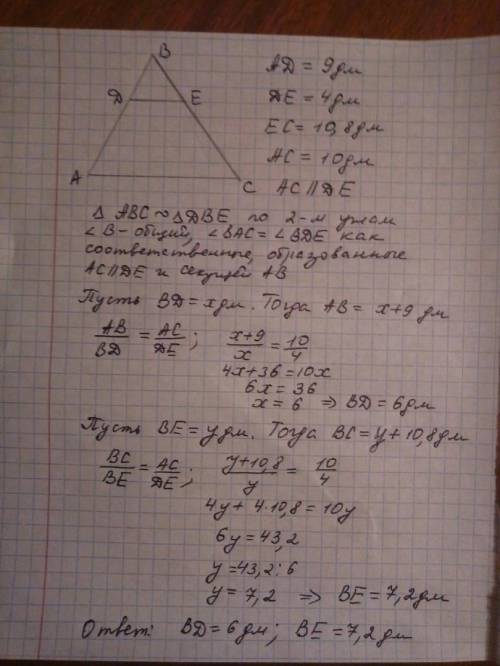 B
D E
A C
AD = 9дм
DE = 4дм
EC = 10,8дм
AC = 10дм
AC || DE
Δ ABC ~ Δ DBE по 2-м углам
∠B - общий, ∠BAC = ∠BDE как
соответственные, образованные
AC || DE и секущей AB
Пусть BD = x дм. Тогда AB = x+9 дм
AB/BD = AC/DE ; x+9/x = 10/4
4x+36 = 10x
6x = 36
x = 6 ⇒ BD = 6дм
Пусть BE = y дм. Тогда BC = y + 10,8дм
BC/BE = AC/DE ; y+10,8/y = 10/4
4y + 4·10,8 = 10y
6y = 43,2
y = 43,2 : 6
y = 7,2 ⇒ BE = 7,2дм
Ответ: BD = 6дм; BE = 7,2дм